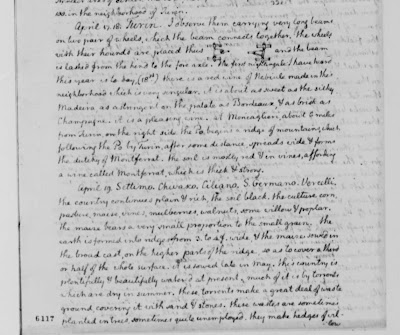 in the neighborhood of
April 17. 18. Turin. I observe them carrying very long beams
on two pair of wheels, which the beam connects together. the wheels
with their hounds are placed thus and the beam
is lashed from the hind to the fore axle. The first nightingale I have heard
this year is to day, (18th) there is a red wine of Nebiule made in this
neighborhood which is very singular. it is about as sweet as the silky
Madeira as astringent on the palate as Bordeaux, & as brisk as
Champagne. it is a pleasing wine. at Moncaglieri, about 6 miles
from Turin, on the right side the Po begins a ridge of mountains, which
following the Po by Turin, after some distance, spreads wide & forms
the dutchy of Montferrat. the soil is mostly red & in vines, affording
a wine called Montferrat, which is thick & strong.
April 19. Settimo. Chivaxo. Ciliano. S. Germano. Vercelli.
the country continues plain & rich, the soil black. the culture corn,
pasture, maize, vines, mulberries, walnuts, some willow & poplar.
the maize bears a very small proportion to the small grain. the
earth is formed into ridges from 3. to 4 f. wide & the maize sown in
the broad cast, on the higher parts of the ridge so as to cover a third
or half of the whole surface. it is sowed late in May. this country is
plentifully & beautifully watered at present. much of it is by torrents
which are dry in summer. these torrents make a great deal of waste
ground, covering it with sand & stones. these wastes are sometimes
planted in trees, sometimes quite unemployed. they make hedges of wil-
6117